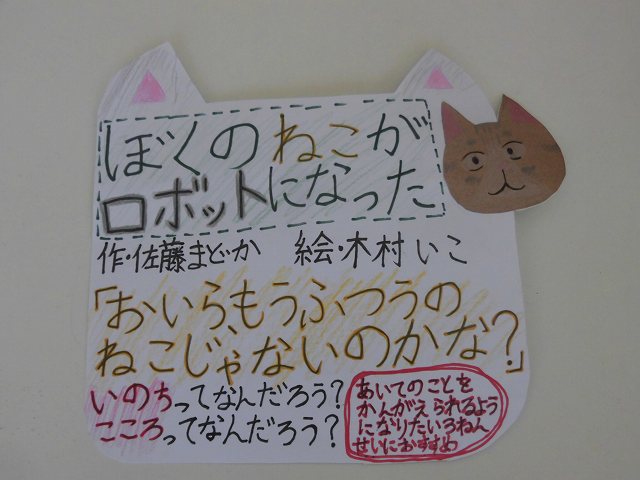 ぼくのねこが
ロボットになった
作・佐藤まどか 絵・木村いこ
「おいらもうふつうの
ねこじゃないのかな?」
いのちってなんだろう?
こころってなんだろう?
あいてのことを
かんがえられるよう
になりたい3ねん
せいにおすすめ